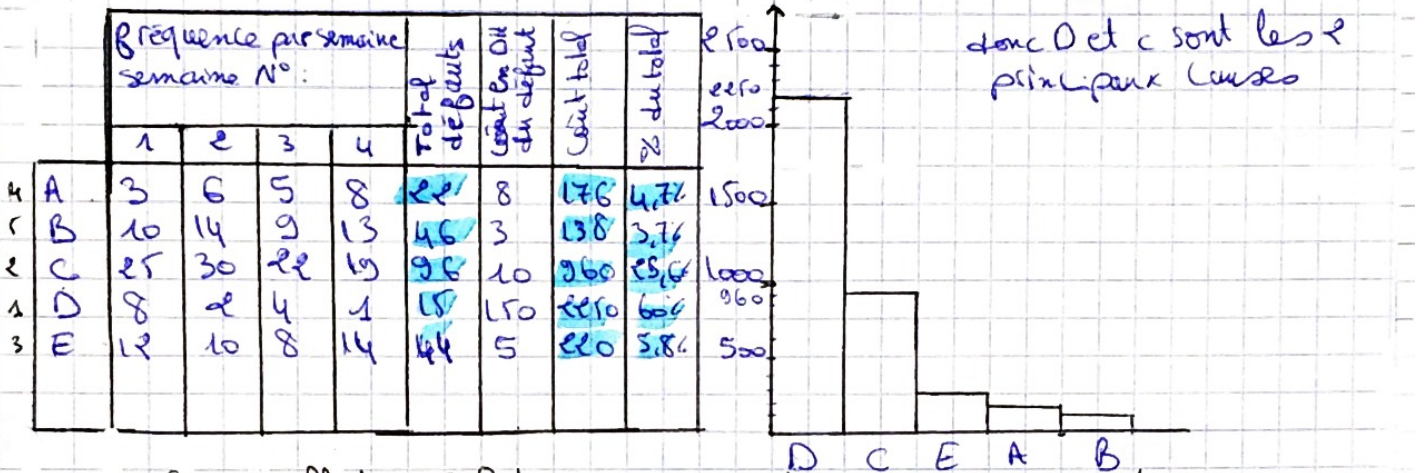 fréquence par semaine
semaine N° :
Total défauts
Coût en DH du défaut
Coût total
% du total
1 2 3 4
4 A 3 6 5 8 22 8 176 4,7%
5 B 10 14 9 13 46 3 138 3,7%
2 C 25 30 22 19 96 10 960 25,6%
1 D 8 2 4 1 15 150 2250 60%
3 E 12 10 8 14 44 5 220 5,8%
2500
2250
2000
1500
1000
960
500
D C E A B
donc D et c sont les 2
principaux causes